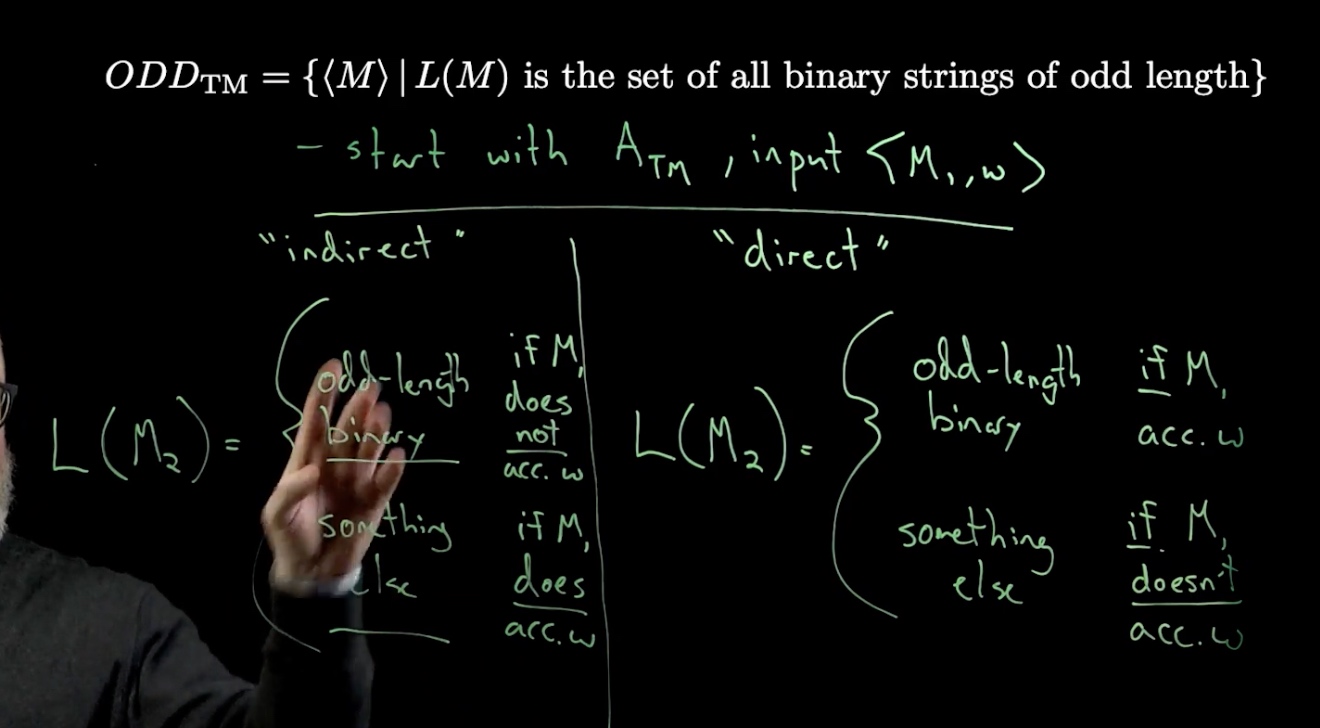 ODD_TM = {⟨M⟩ | L(M) is the set of all binary strings of odd length}
- start with A_TM, input <M₁, w>
"indirect"
L(M₂) = {
odd-length binary if M₁ does not acc. w
something else if M₁ does acc. w
"direct"
L(M₂) = {
odd-length binary if M₁ acc. w
something else if M₁ doesn't acc. w